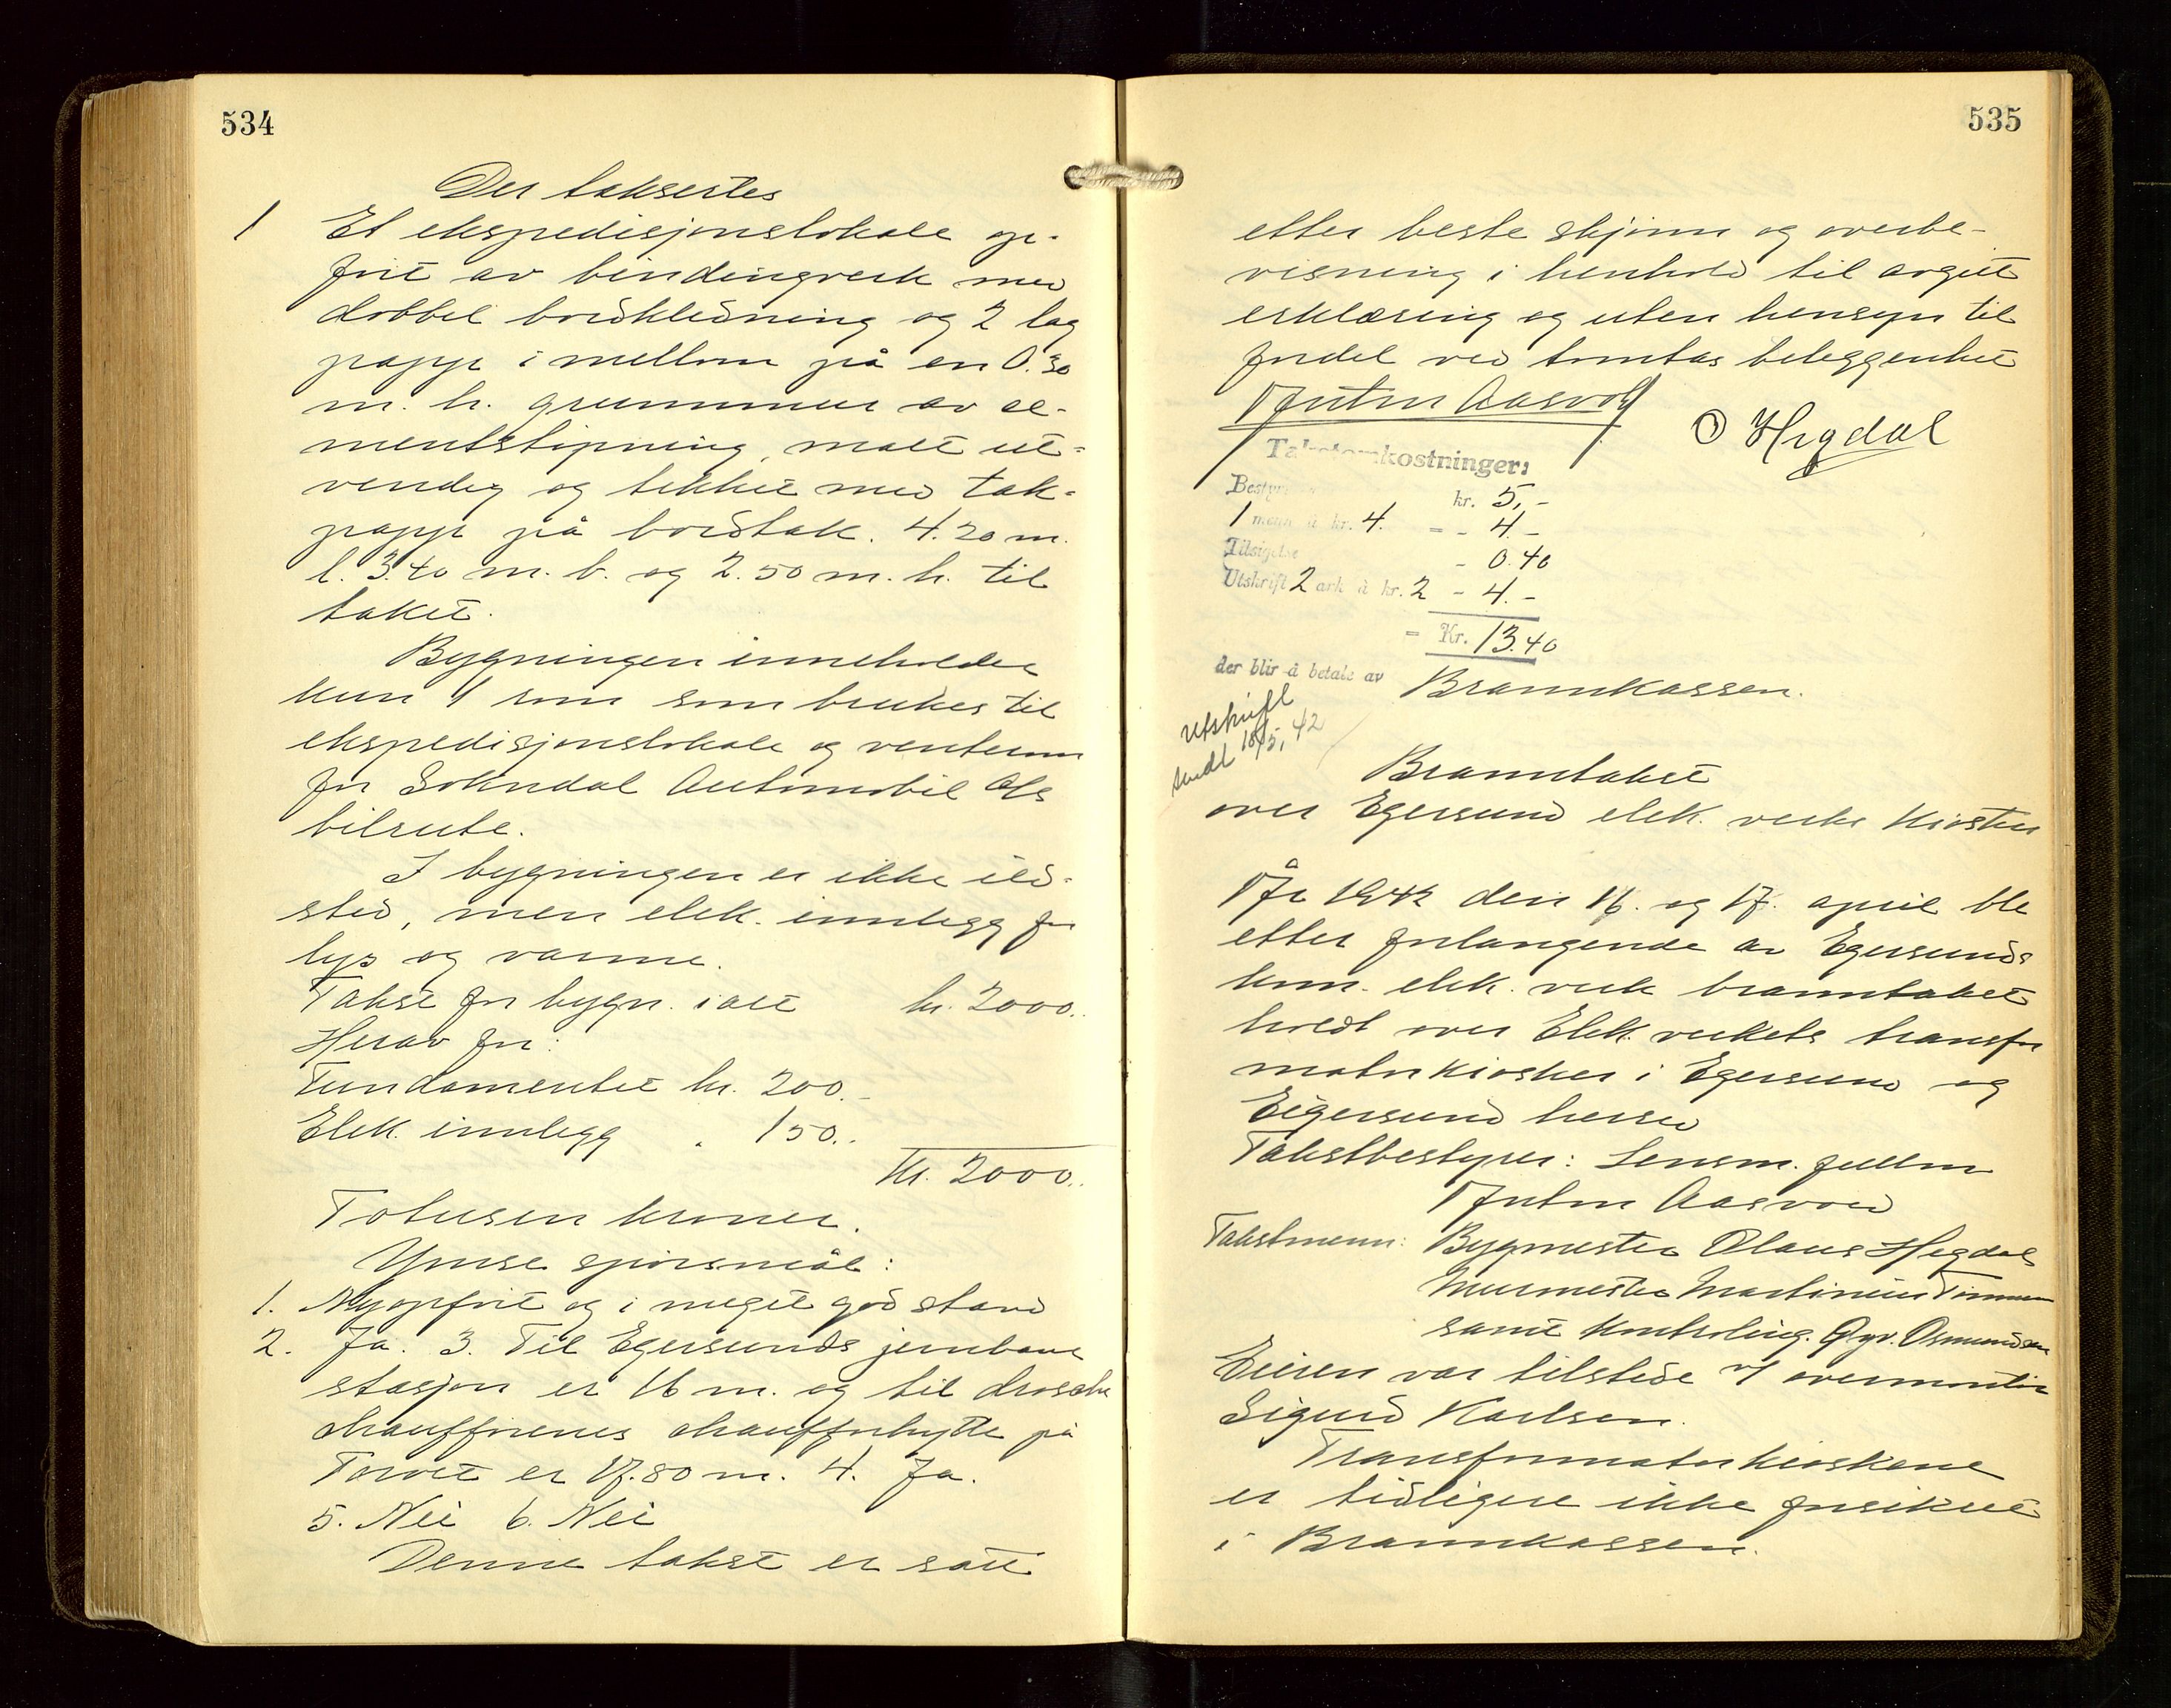 534
Der taksertes
1 Et ekspedisjonslokale op-
ført av bindingverk med
dobbel bordkledning og 2 lag
papp i mellom på en 0.30
m. h. grunnmur av se-
mentstøpning, malt ut-
vendig og tekket med tak-
papp på bordtak. 4.20 m.
l. 3.40 m. b. og 2.50 m. h. til
taket.
Bygningen inneholder
kun 1 rom som brukes til
ekspedisjonslokale og venterum
for Sokndal Automobil A/S
bilrute.
I bygningen er ikke ild-
sted, men elek. innlegg for
lys og varme.
Takst for bygn. i alt kr. 2000.-
Herav for:
Fundamentet kr. 200.-
Elek. innlegg " 150.-
Kr. 2000.-
Totusen kroner.
Ymse spørsmål:
1. Nyopført og i meget god stand
2. Ja. 3. Til Egersunds jernbane
stasjon er 16 m. og til drosche
chaufførenes chaufførhytte på
Torvet er 17.80 m. 4. Ja.
5. Nei 6. Nei
Denne takst er satt
535
etter beste skjønn og overbe-
visning i henhold til avgitt
erklæring og uten hensyn til
fordel ved tomtas beleggenhet
Anton Aasvold
O Hegdal
Takstomkostninger:
Bestyr kr. 5,-
1 menn à kr. 4. = - 4.-
Tilsigelse - 0.40
Utskrift 2 ark à kr. 2 - 4.-
= Kr. 13.40
der blir å betale av Brannkassen.
Utskrift
sendt 18/5, 42
Branntakst
over Egersund elek. verks kiosker
År 1942 den 16. og 17. april ble
etter forlangende av Egersunds
kom. elek. verk branntakst
holdt over Elek. verkets transfor
matorkiosker i Egersund og
Eigersund herred
Takstbestyrer: Lensm. fullm
Anton Aasvold
Takstmenn: Bygmester Olaus Hegdal
Murmester Martinius
samt Kontroling. Osmundsen
Eieren var tilstede v/ overmontør
Sigurd Karlsen.
Transformatorkioskene
er tidligere ikke forsikret
i Brannkassen.